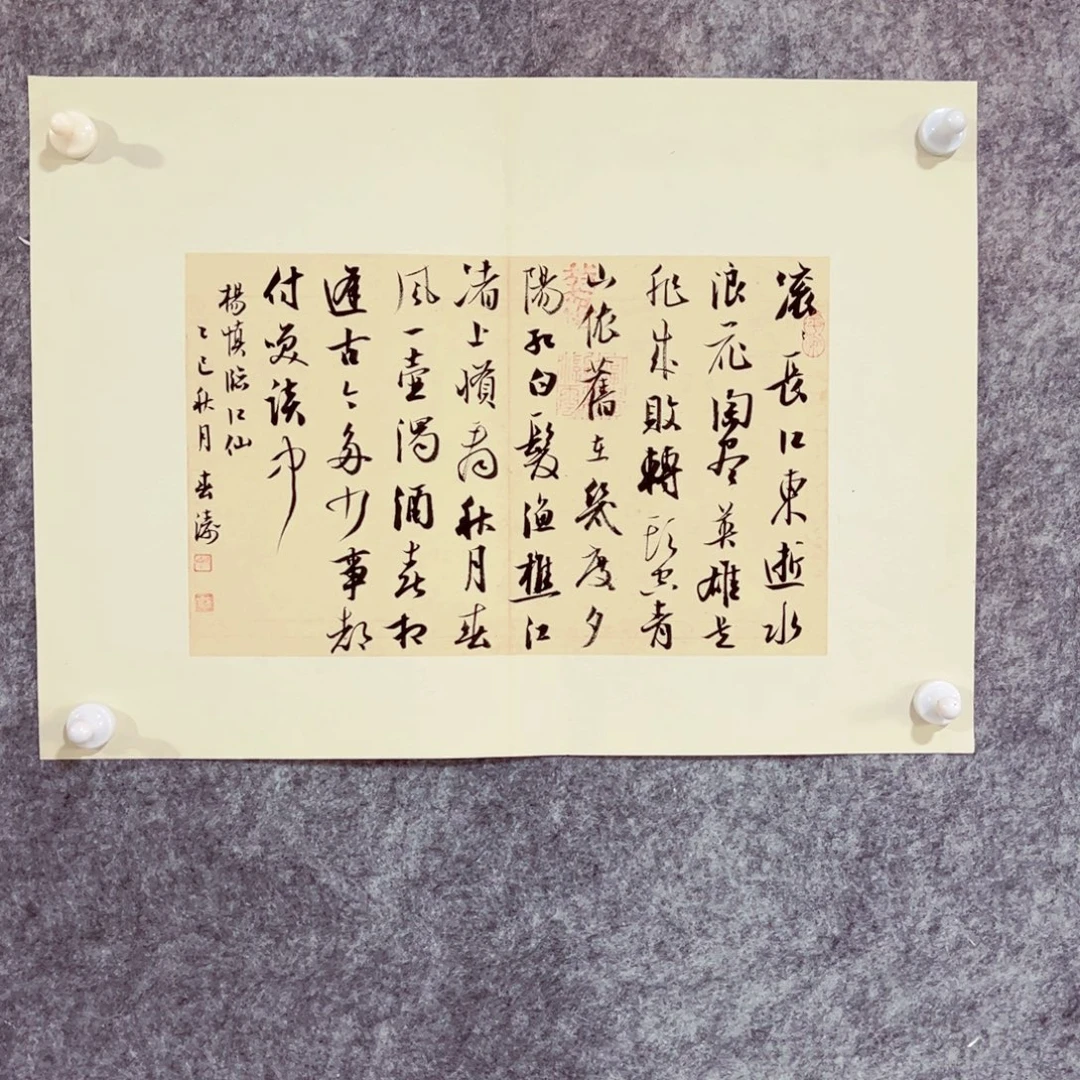 滚〻長江東逝水
浪花淘尽英雄是
非成敗轉頭空青
山依舊在幾度夕
陽紅白髮漁樵江
渚上慣看秋月春
風一壺濁酒喜相
逢古今多少事都
付笑談中
楊慎臨江仙
乙巳秋月春濤